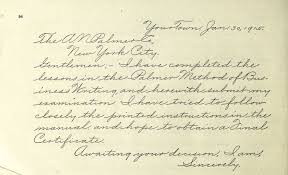 Your Town, Jan. 30, 1915.
The A. N. Palmer Co.,
New York City.
Gentlemen,— I have completed the
lessons in the Palmer Method of Bus-
iness Writing and herewith submit my
examination. I have tried to follow
closely the printed instructions in the
manual and hope to obtain a Final
Certificate.
Awaiting your decision, I am,
Sincerely,